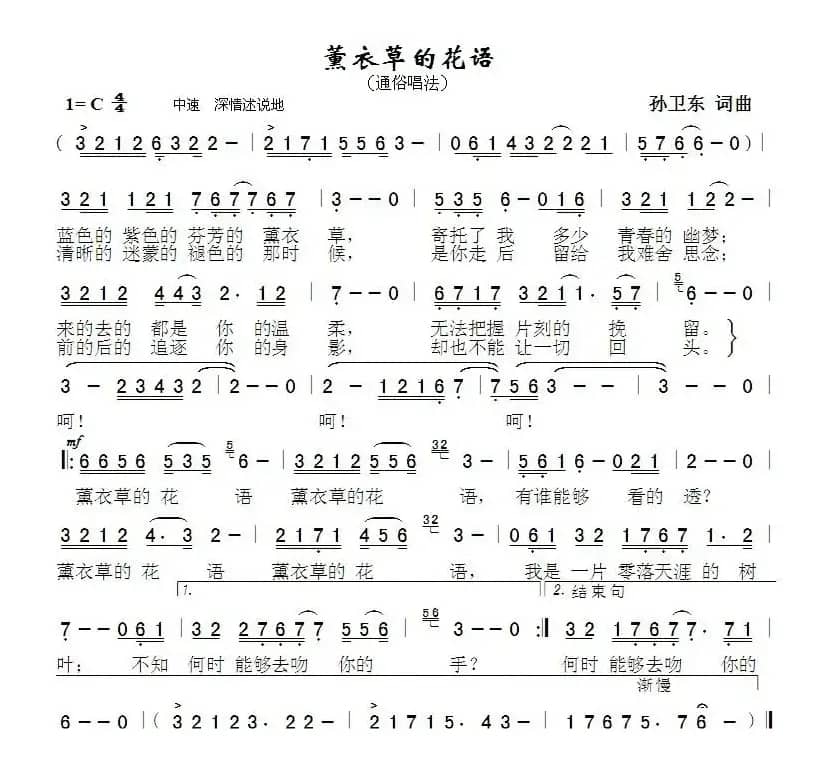 薰衣草的花语
（通俗唱法）
1=C 4/4 中速 深情述说地 孙卫东 词曲
( 3 2 1 2 6 3 2 2 - | 2 1 7 1 5 5 6 3 - | 0 6 1 4 3 2 2 2 2 1 | 5 7 6 6 - 0 ) |
3 2 1 1 2 1 7 6 7 7 6 7 | 3 - - 0 | 5 3 5 6 - 0 1 6 | 3 2 1 1 2 2 - |
蓝色的 紫色的 芬芳的 薰衣 草， 寄托了 我 多少 青春的 幽梦；
清晰的 迷蒙的 褪色的 那时 候， 是你走 后 留给 我难舍 思念；
3 2 1 2 4 4 3 2 · 1 2 | 7 - - 0 | 6 7 1 7 3 2 1 1 · 5 7 | 5 6 - - 0 |
来的去的 都是 你 的温 柔， 无法把握 片刻的 挽 留。
前的后的 追逐 你 的身 影， 却也不能 让一切 回 头。
3 - 2 3 4 3 2 | 2 - - 0 | 2 - 1 2 1 6 7 | 7 5 6 3 - - | 3 - - 0 |
呵！ 呵！ 呵！
mf
‖: 6 6 5 6 5 3 5 5 6 - | 3 2 1 2 5 5 6 32 3 - | 5 6 1 6 - 0 2 1 | 2 - - 0 |
薰衣草的 花 语 薰衣草的花 语， 有谁能够 看的 透？
3 2 1 2 4 · 3 2 - | 2 1 7 1 4 5 6 32 3 - | 0 6 1 3 2 1 7 6 7 1 · 2 |
薰衣草的 花 语 薰衣草的 花 语， 我是 一片 零落天涯 的 树
1. 2. 结束句
7 - - 0 6 1 | 3 2 2 7 6 7 7 5 5 6 | 56 3 - - 0 :‖ 3 2 1 7 6 7 7 · 7 1 |
叶； 不知 何时 能够去吻 你的 手？ 何时 能够去吻 你的
渐慢
6 - - 0 | ( 3 2 1 2 3 . 2 2 - | 2 1 7 1 5 . 4 3 - | 1 7 6 7 5 . 7 6 - ) ‖